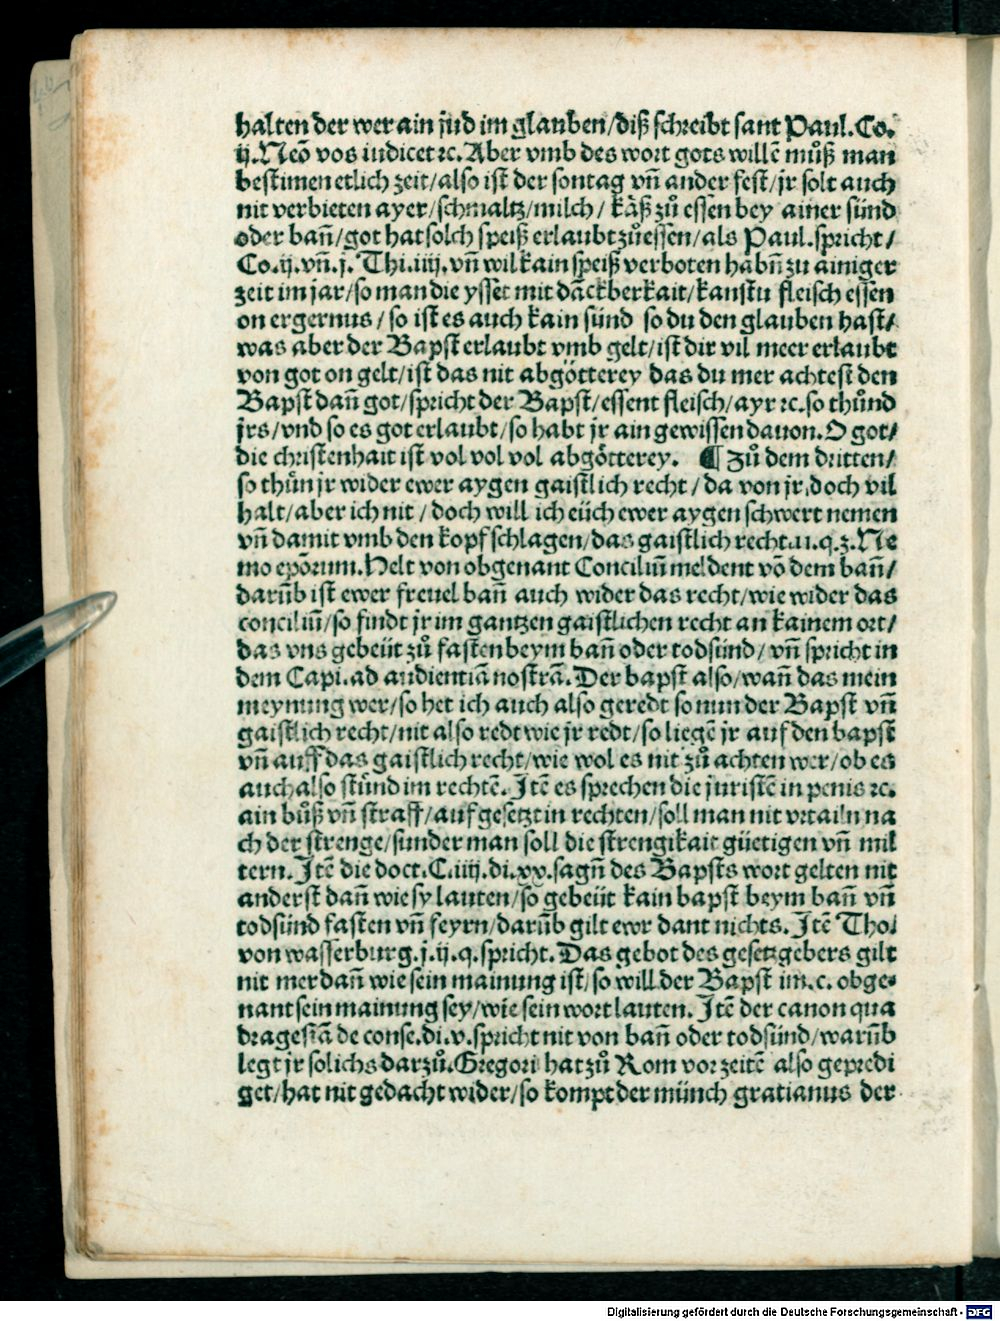 halten der wer ain jud im glauben/diß schreibt sant Paul. Co.
ij. Neō vos iudicet ꝛc. Aber vmb des wort gots willē můß man
bestimen etlich zeit/also ist der sontag vñ ander fest/jr solt auch
nit verbieten ayer/schmaltz/milch/ kåß zů essen bey ainer sünd
oder bañ/got hat solch speiß erlaubt zůessen/als Paul. spricht/
Co. ij. vñ. j. Thi. iiij. vñ wil kain speiß verboten habñ zu ainiger
zeit im jar/so man die ysset mit dāckberkait/kanstu fleisch essen
on ergernus/so ist es auch kain sünd so du den glauben hast/
was aber der Bapst erlaubt vmb gelt/ist dir vil meer erlaubt
von got on gelt/ist das nit abgötterey das du mer achtest den
Bapst dañ got/spricht der Bapst/essent fleisch/ayr ꝛc. so thůnd
jrs/vnd so es got erlaubt/so habt jr ain gewissen dauon. O got/
die christenhait ist vol vol vol abgötterey. ¶ Zů dem dritten/
so thůn jr wider ewer aygen gaistlich recht/da von jr doch vil
halt/aber ich nit/doch will ich eüch ewer aygen schwert nemen
vñ damit vmb den kopf schlagen/das gaistlich recht. ii. q. z. Ne
mo epōrum. Helt von obgenant Conciliū meldent vō dem bañ/
darūb ist ewer freuel bañ auch wider das recht/wie wider das
conciliū/so findt jr im gantzen gaistlichen recht an kainem ort/
das vns gebeüt zů fasten beym bañ oder todsünd/vñ spricht in
dem Capi. ad audientiā nostrā. Der bapst also/wañ das mein
meynung wer/so het ich auch also geredt so nun der Bapst vñ
gaistlich recht/nit also redt wie jr redt/so liegē jr auf den bapst
vñ auff das gaistlich recht/wie wol es nit zů achten wer/ob es
auch also stünd im rechtē. Jtē es sprechen die juristē in penis ꝛc.
ain bůß vñ straff/auf gesetzt in rechten/soll man nit vrtailn na
ch der strenge/sunder man soll die strengikait güetigen vñ mil
tern. Jtē die doct. C. iiij. di. xx. sagñ des Bapsts wort gelten nit
anderst dañ wie sy lauten/so gebeüt kain bapst beym bañ vñ
todsünd fasten vñ feyrn/darūb gilt ewr dant nichts. Jtē Tho/
von wasserburg. j. ij. q. spricht. Das gebot des gesetzgebers gilt
nit mer dañ wie sein mainung ist/so will der Bapst im. c. obge-
nant sein mainung sey/wie sein wort lauten. Jtē der canon qua
dragesiā de conse. di. v. spricht nit von bañ oder todsünd/warūb
legt jr solichs darzů. Gregori hat zů Rom vor zeitē also gepredi
get/hat nit gedacht wider/so kompt der münch gratianus der
Digitalisierung gefördert durch die Deutsche Forschungsgemeinschaft - DFG